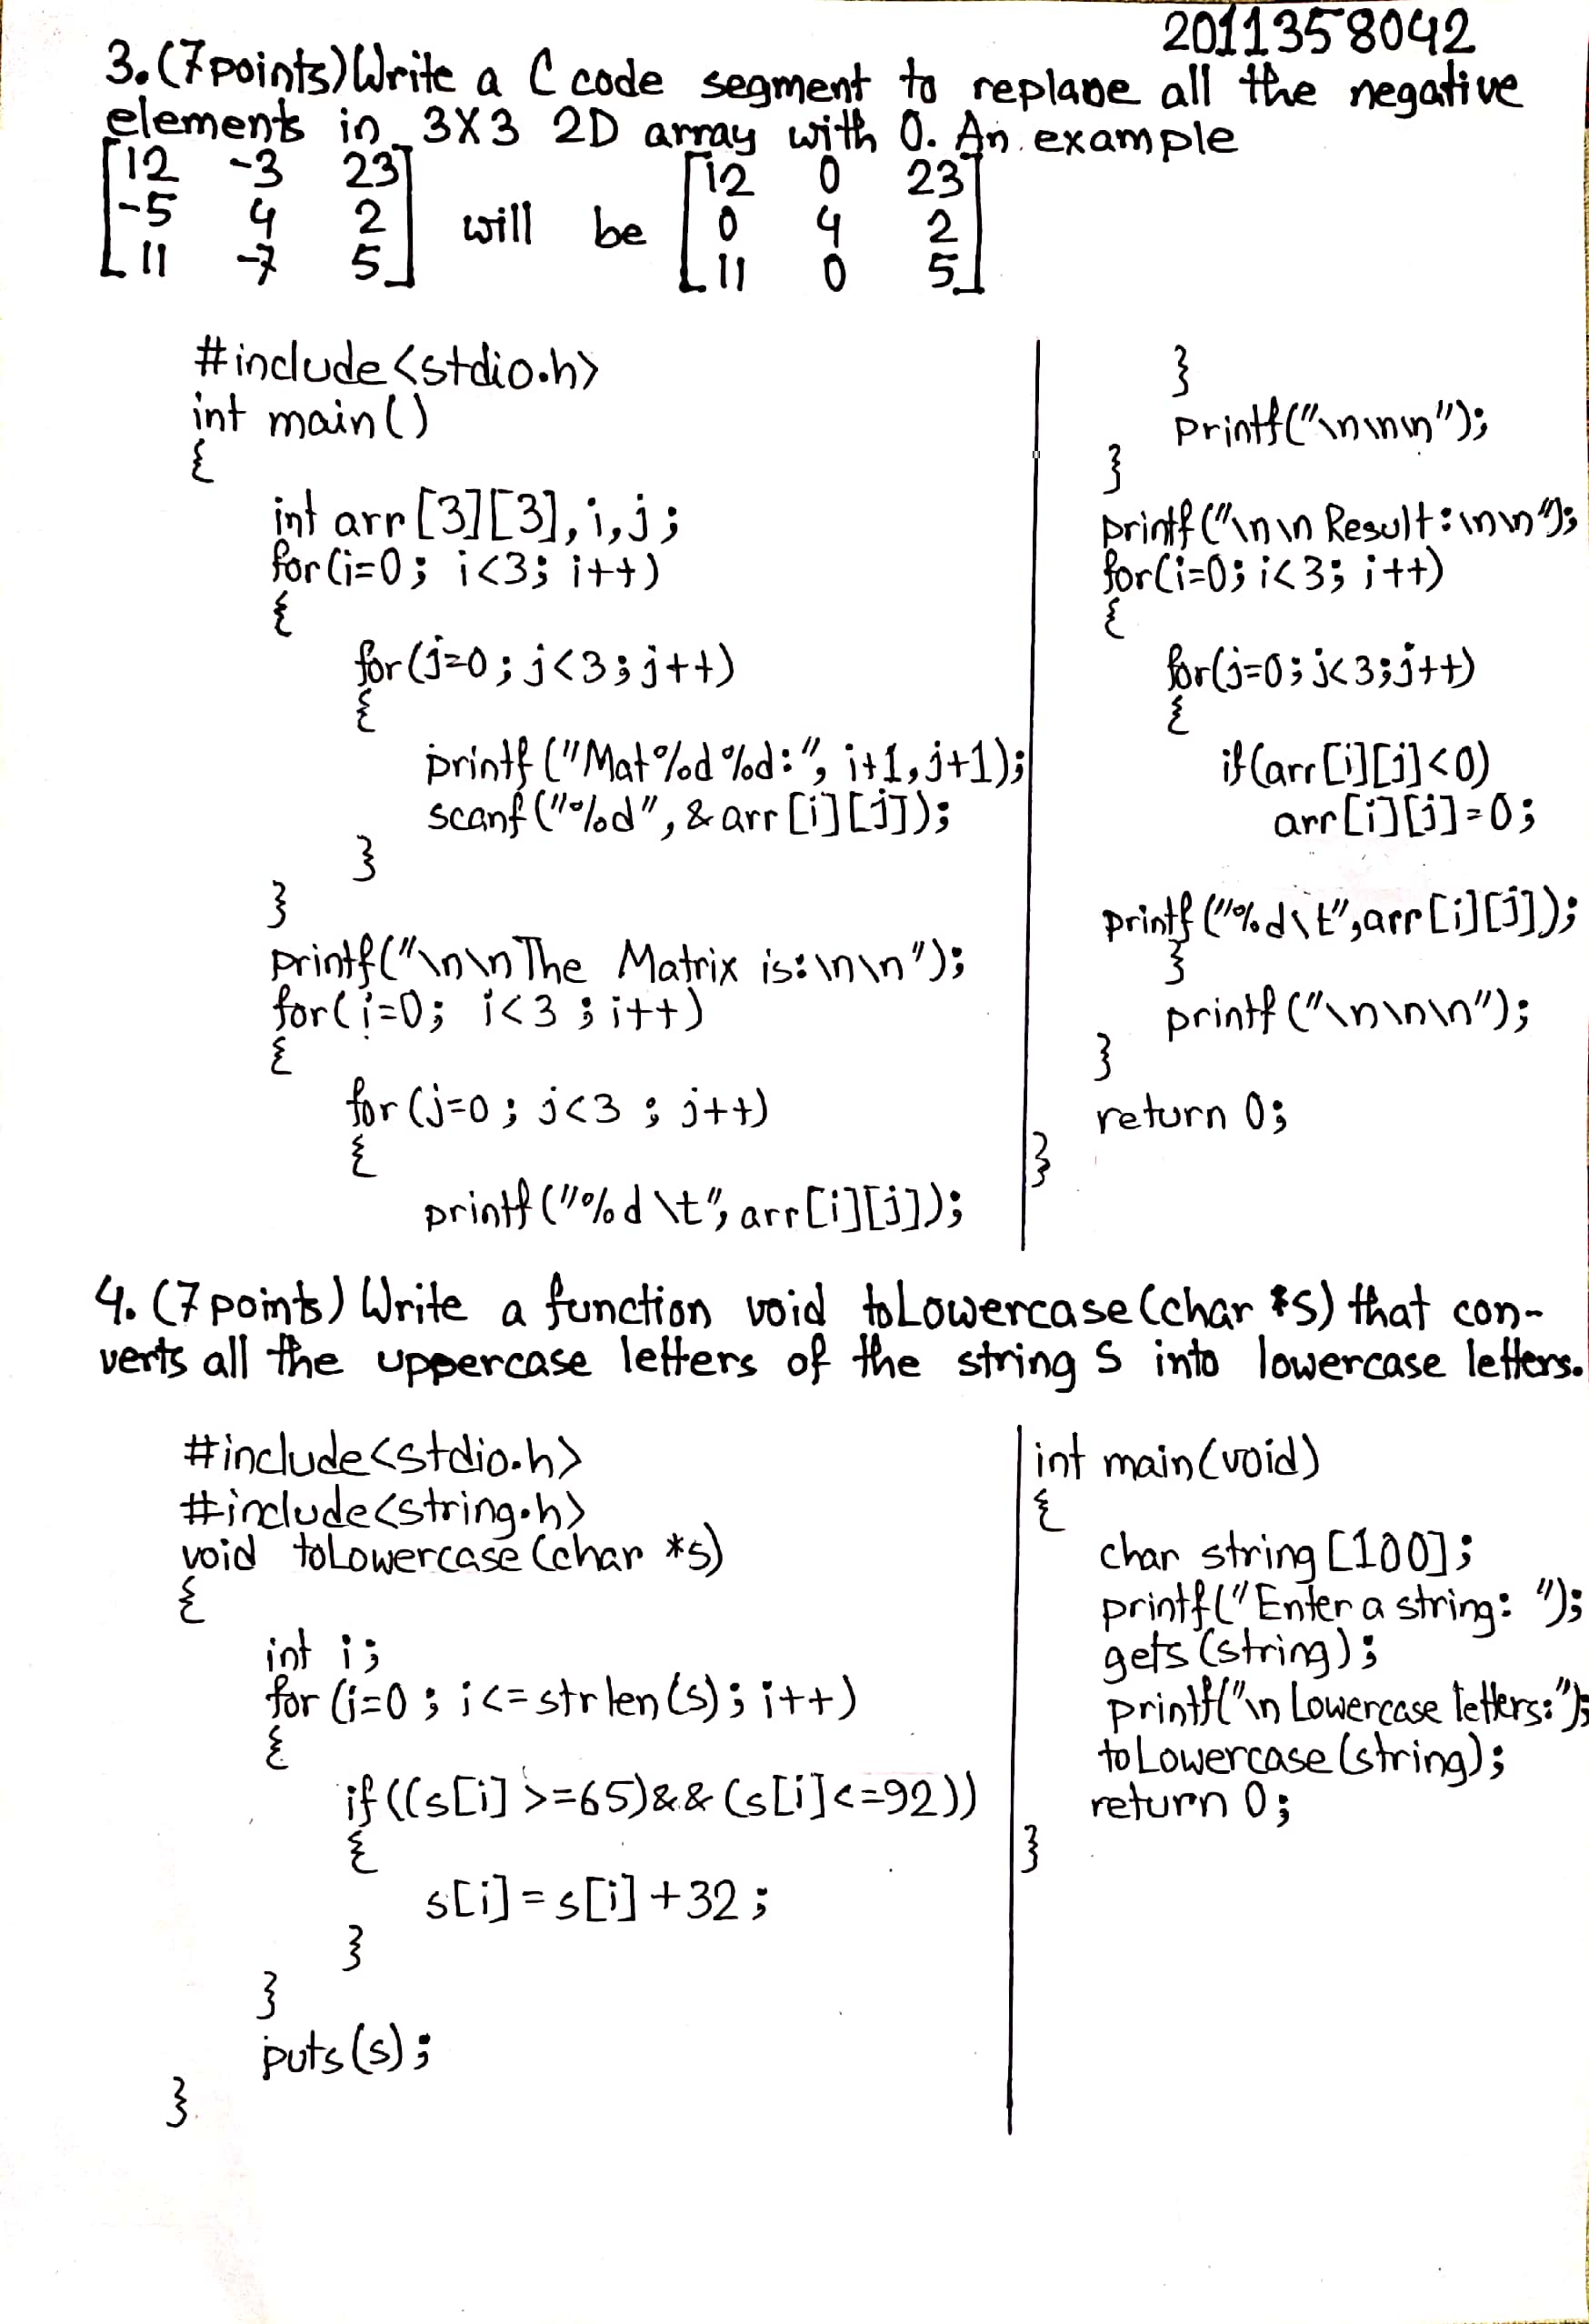 2011358042
3. (7 points) Write a C code segment to replace all the negative
elements in 3X3 2D array with 0. An example
[12 -3 23] [12 0 23]
[-5 4 2] will be [0 4 2]
[11 -7 5] [11 0 5]
#include<stdio.h>
int main()
{
int arr[3][3],i,j;
for(i=0; i<3; i++)
{
for(j=0; j<3; j++)
{
printf("Mat%d%d:", i+1,j+1);
scanf("%d", &arr[i][j]);
}
}
printf("\n\nThe Matrix is:\n\n");
for(i=0; i<3; i++)
{
for(j=0; j<3; j++)
{
printf("%d\t", arr[i][j]);
}
printf("\n\n\n");
}
printf("\n\n Result:\n\n");
for(i=0; i<3; i++)
{
for(j=0; j<3; j++)
{
if(arr[i][j]<0)
arr[i][j]=0;
printf("%d\t",arr[i][j]);
}
printf("\n\n\n");
}
return 0;
}
4. (7 points) Write a function void toLowercase(char *s) that con-
verts all the uppercase letters of the string s into lowercase letters.
#include<stdio.h>
#include<string.h>
void toLowercase(char *s)
{
int i;
for(i=0; i<=strlen(s); i++)
{
if((s[i] >=65)&&(s[i]<=92))
{
s[i]=s[i]+32;
}
}
puts(s);
}
int main(void)
{
char string[100];
printf("Enter a string: ");
gets(string);
printf("\n Lowercase letters:");
toLowercase(string);
return 0;
}